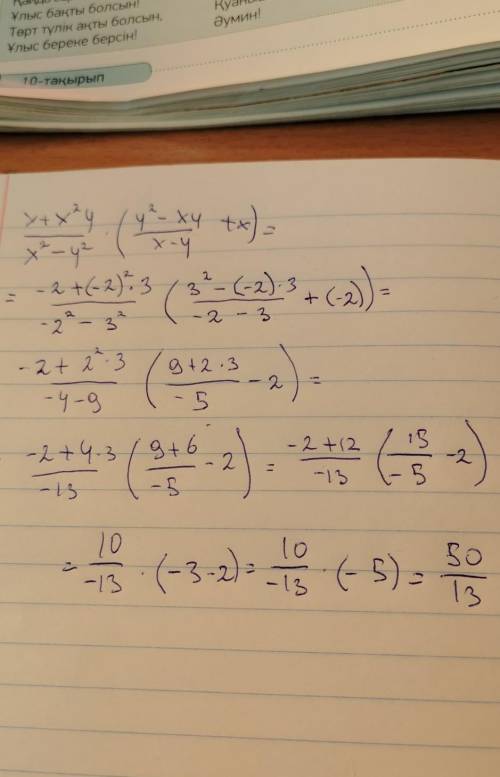 Ұлыс бақты болсын!
Төрт түлік ақты болсын,
Ұлыс береке берсін!
Әумин!
10-тақырып
x+x²y/x²-y² · (y²-xy/x-y +x)=
= -2+(-2)²·3/-2²-3² (3²-(-2)·3/-2-3 +(-2))=
-2+2²·3/-4-9 (9+2·3/-5 -2)=
-2+4·3/-13 (9+6/-5 -2) = -2+12/-13 (15/-5 -2)
= 10/-13 · (-3-2)= 10/-13 · (-5) = 50/13